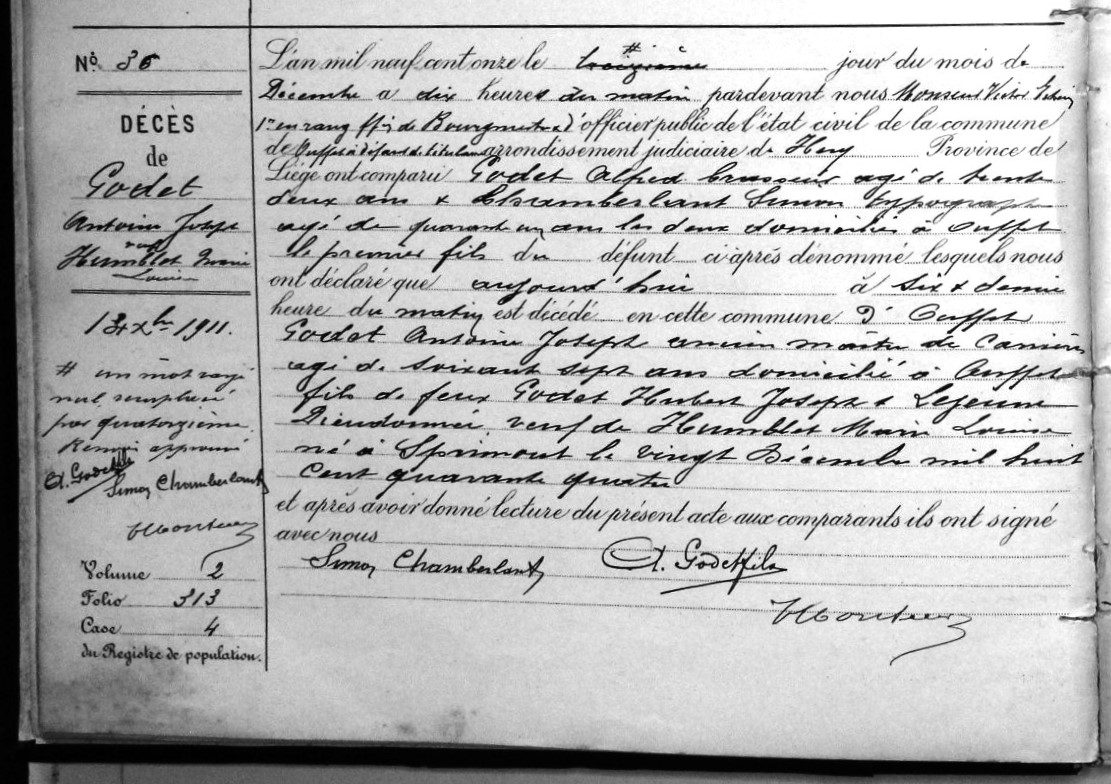 No. 36
DÉCÈS
de
Godet
Antoine Joseph
Humblet Marie
Louise
14 Xbre 1911.
# un mot rayé
nul remplacé
par quatorzième.
Renvoi approuvé
A. Godet fils
Simon Chamberlant
Volume 2
Folio 313
Case 4
du Registre de population.
L'an mil neuf cent onze le # treizième jour du mois de
Décembre a dix heures du matin pardevant nous Monsieur Victor
1er en rang ffns de Bourgmestre & d'officier public de l'état civil de la commune
de Ouffet à défaut de titulaire arrondissement judiciaire de Huy Province de
Liège ont comparu Godet Alfred brasseur agé de trente
deux ans & Chamberlant Simon typographe
agé de quarante un ans les deux domiciliés à Ouffet
le premier fils du défunt ci-après dénommé lesquels nous
ont déclaré que aujourd'hui à six & demie
heure du matin est décédé en cette commune d'Ouffet
Godet Antoine Joseph ancien maître de Carrières
agé de soixante sept ans domicilié à Ouffet
fils de feux Godet Hubert Joseph & Lejeune
Dieudonnée veuf de Humblet Marie Louise
né à Sprimont le vingt Décembre mil huit
cent quarante quatre
et après avoir donné lecture du présent acte aux comparants ils ont signé
avec nous
Simon Chamberlant A. Godet fils